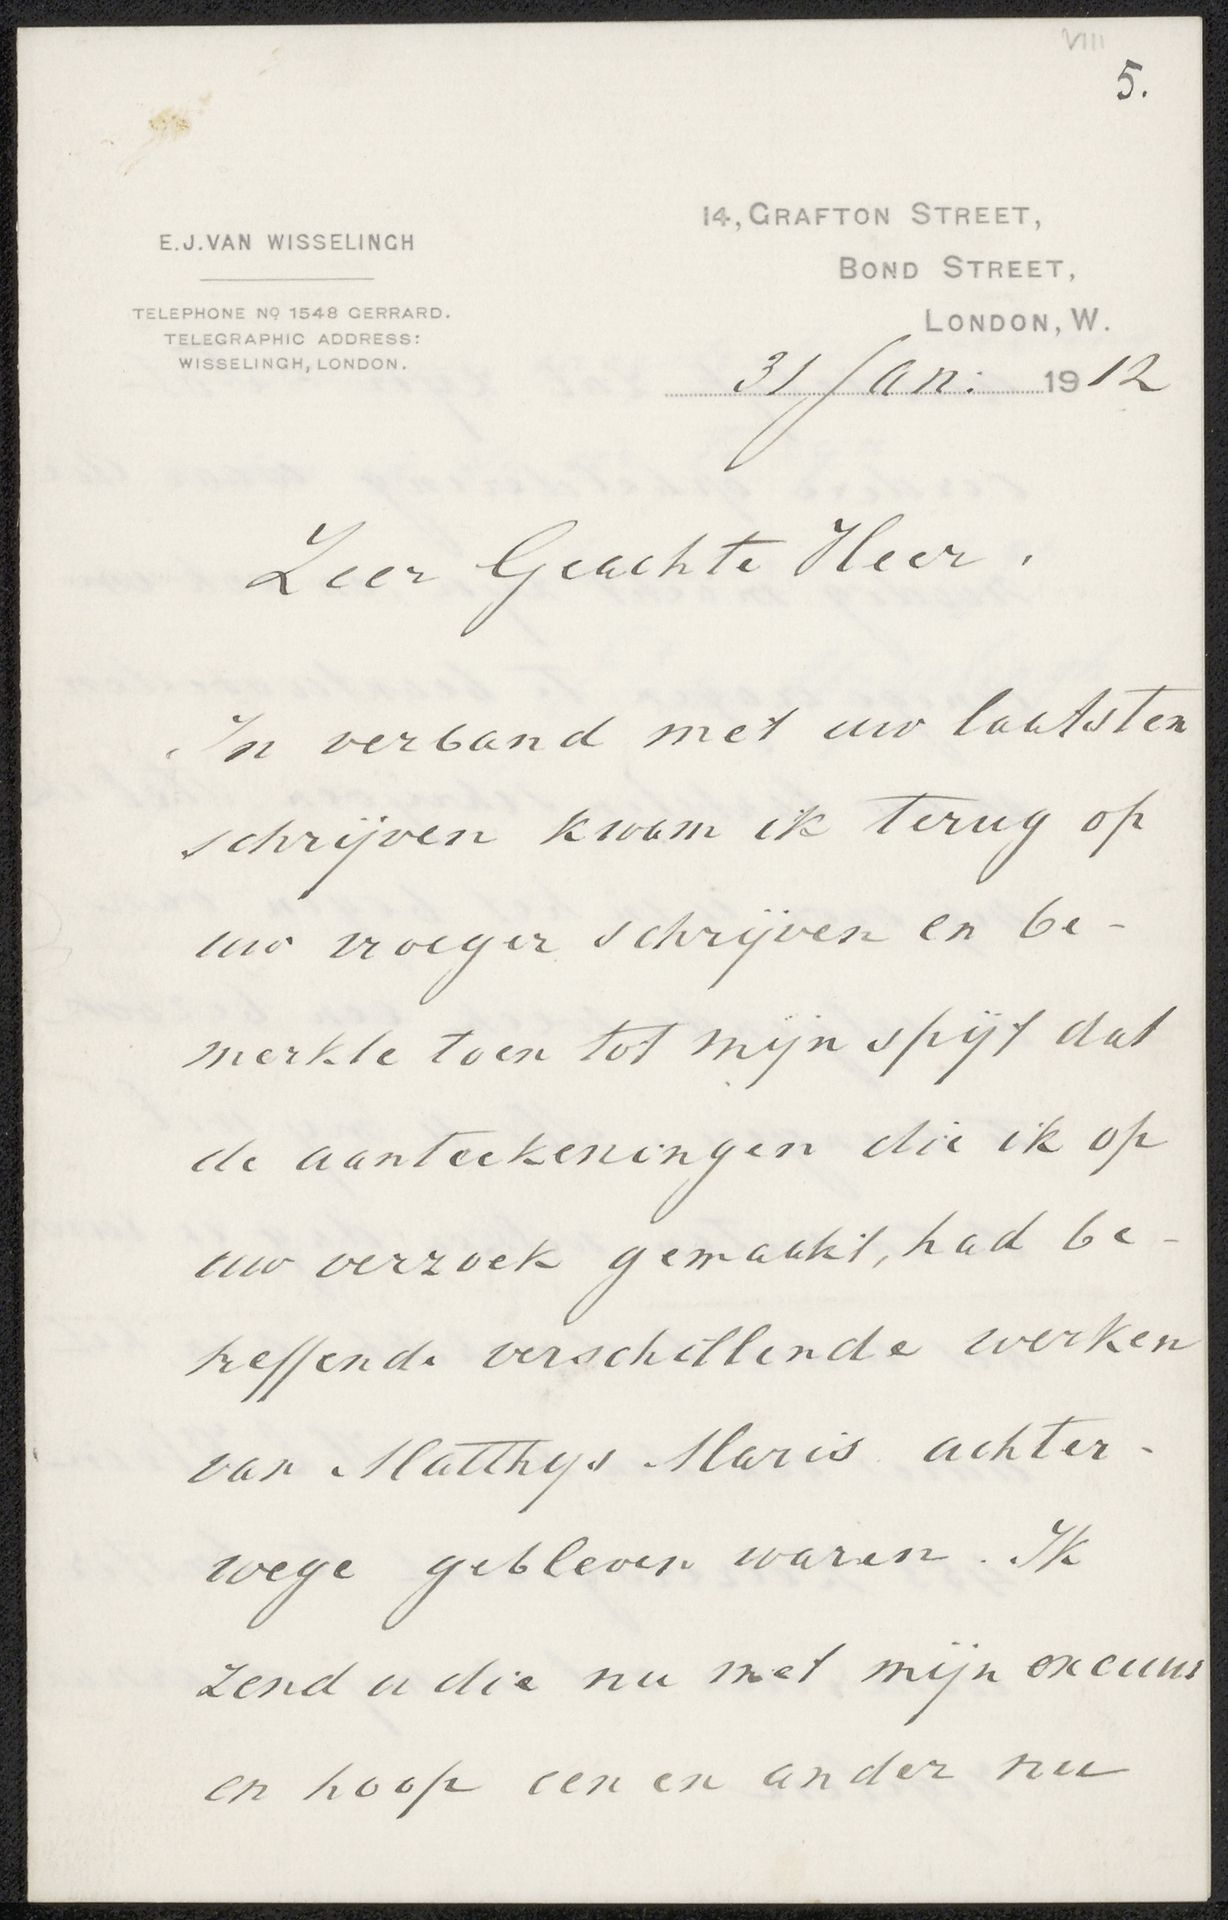 VIII
5.
E.J. VAN WISSELINGH
TELEPHONE No 1548 GERRARD.
TELEGRAPHIC ADDRESS:
WISSELINGH, LONDON.
14, GRAFTON STREET,
BOND STREET,
LONDON, W.
31 Jan: 1912
Zeer Geachte Heer,
In verband met uw laatsten
schrijven kwam ik terug op
uw vroeger schrijven en be-
merkte toen tot mijn spijt dat
de aanteekeningen die ik op
uw verzoek gemaakt, had be-
treffende verschillende werken
van Matthys Maris achter-
wege gebleven waren. Ik
zend u die nu met mijn excuus
en hoop een en ander nu